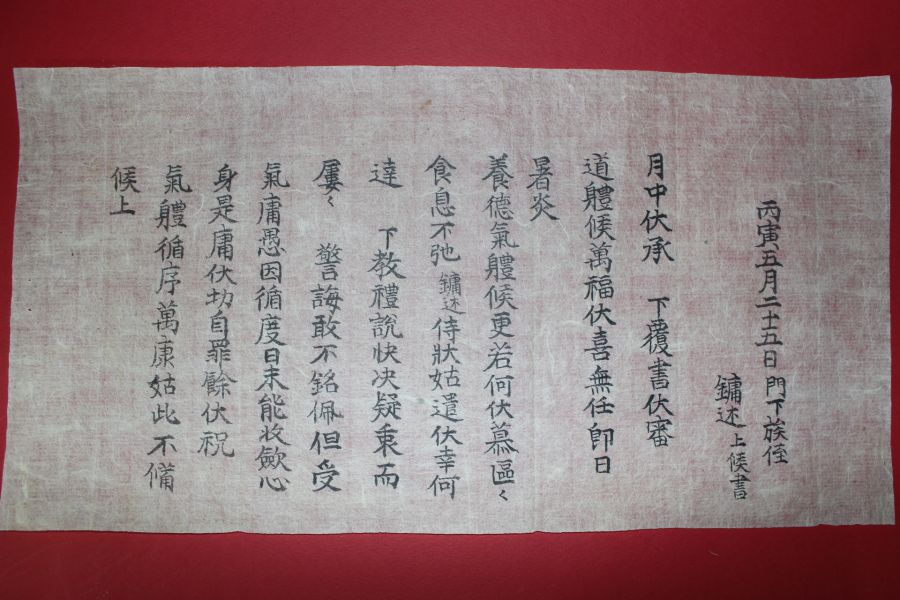 丙寅五月二十五日 門下族侄
鏞述 上候書
月中伏承 下覆書伏審
道體候萬福伏喜無任卽日
暑炎
養德氣體候更若何伏慕區〻
食息不弛 鏞述 侍狀姑遣伏幸何
達 下教禮說快决疑 而
屢〻 警誨敢不銘佩但受
氣庸愚因循度日未能收歛心
身是庸伏切自罪餘伏祝
氣體循序萬康姑此不備
候上